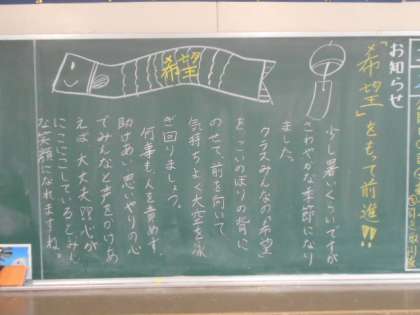 お知らせ
「希望」をもって前進!!!
少し暑いくらいですが
さわやかな季節になり
ました。
クラスみんなの「希望
を、こいのぼりの背に
のせて、前を向いて、
気持ちよく大空を泳
ぎ回りましょう。
何事も、人を責めず、
助けあい、思いやりの心
でみんなと声をかけあ
えば大丈夫!!心が
にこにこしているとみん
な笑顔になれますね。
希望